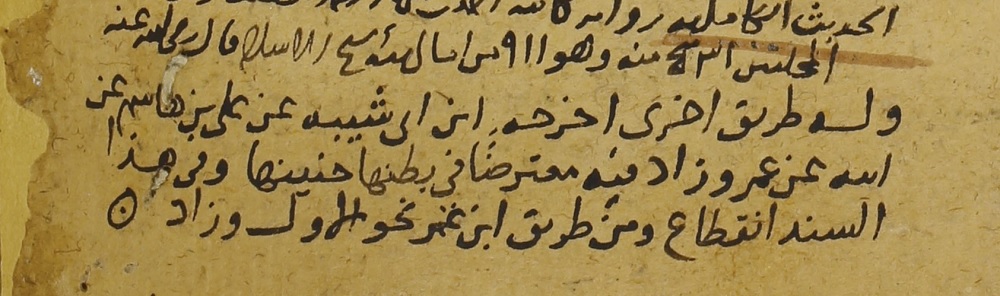 الحديث
المجلس منه وهو ١١٩ من امالى شيخ الاسلام قال رضى الله عنه
وله طريق اخرى اخرجه ابن ابى شيبه عن على بن هاشم عن
ابيه عن عمر وزاد فيه معترضًا فى بطنها جنينها وفى هذا
السند انقطاع ومن طريق ابن عمر نحو الاول وزاد